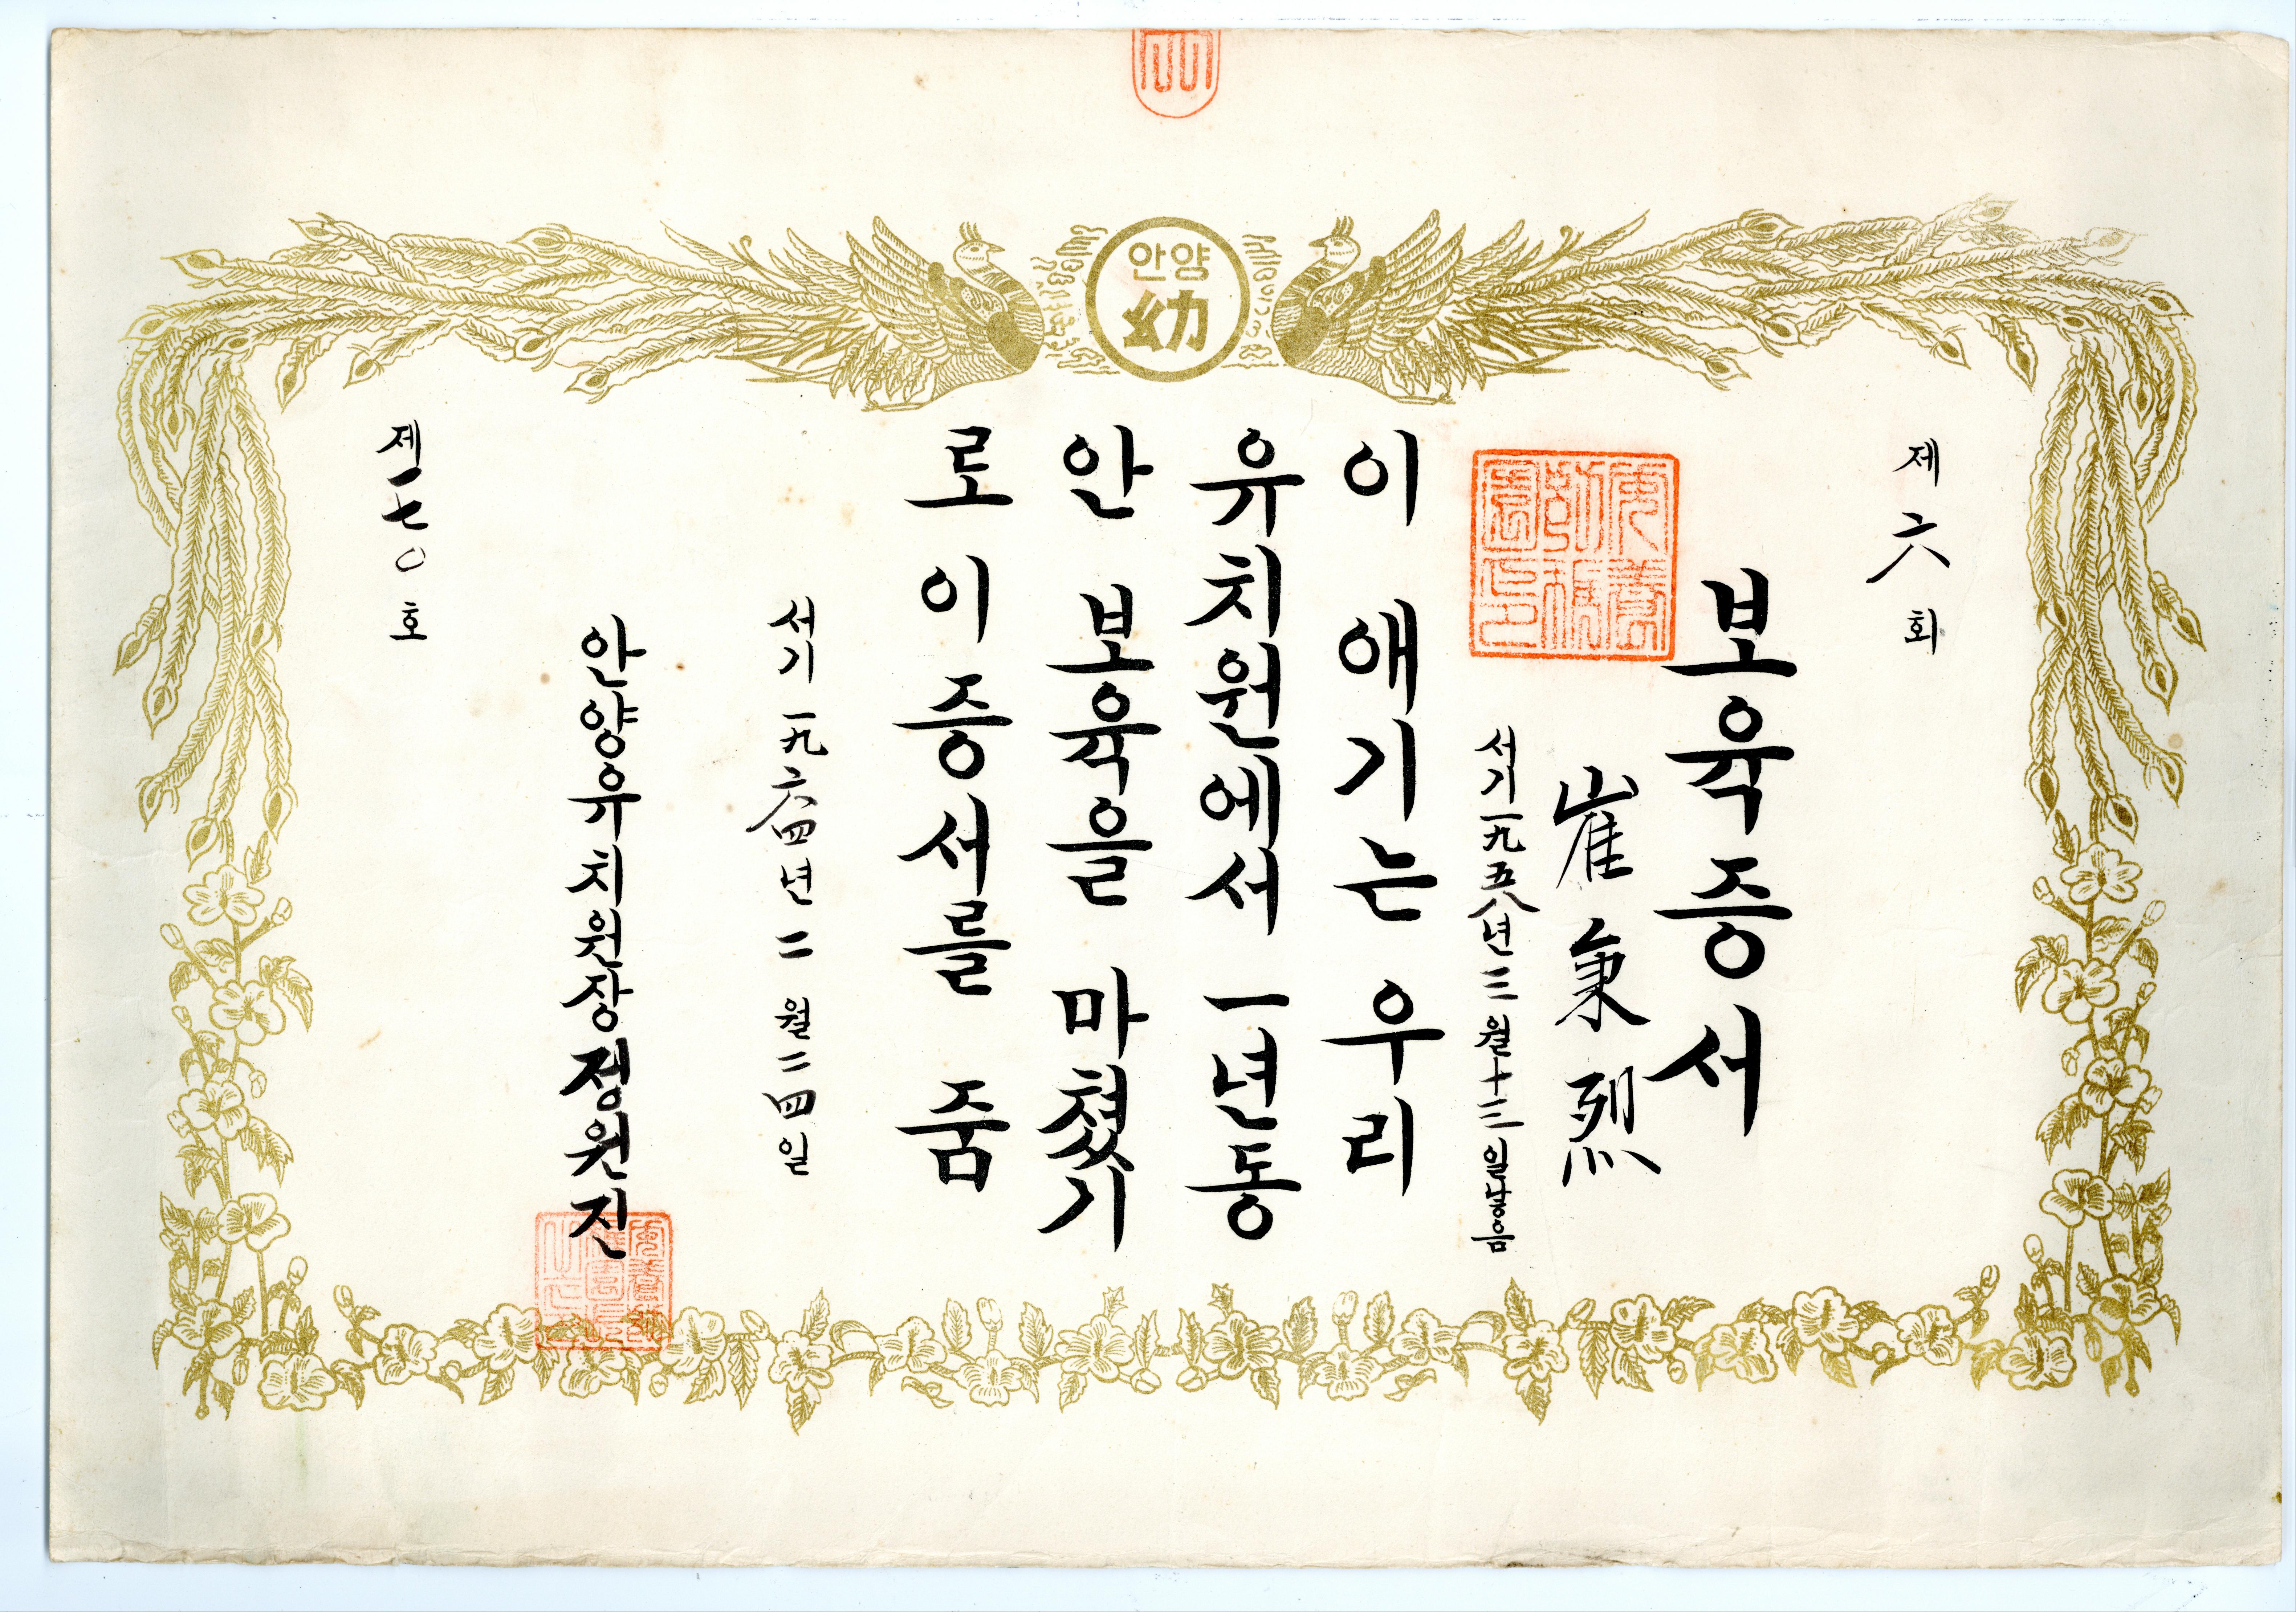 안양
幼
제六회
보육증서
崔秉烈
서기一九五八년三월十三일낳음
이 애기는 우리
유치원에서 一년동
안 보육을 마쳤기
로 이 증서를 줌
서기一九六四년二월二四일
안양유치원장 정원진
제一七〇호